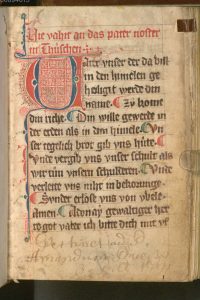 Hie vahit an das pater noster
in Thüschen
Vatter vnser der da bist
in den himelen ge
heiliget werde din
name Zů kome
din riche Din wille gewerde in
der erden als in dem himele Vn
ser tegelich brot gib vns hüte
Vnde vergib vns vnser schult als
wir tůn vnsern schuldern Vnde
verleite vns niht in bekorunge
Sunder erlöse vns von vbele
amen Adonay gewaltiger her
re got vater ich bitte dich mit
Pertinet ad